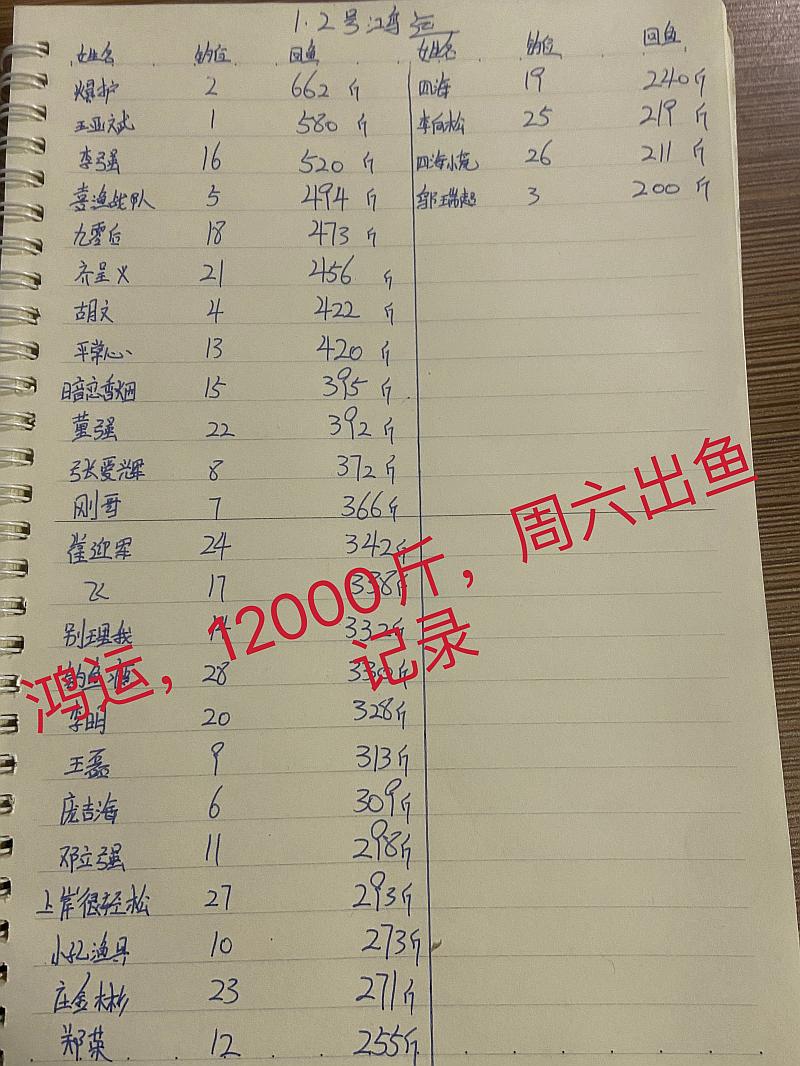 1.2号鸿运
姓名 钓位 回鱼
爆护 2 662斤
王亚斌 1 580斤
李强 16 520斤
喜渔战队 5 494斤
九零后 18 473斤
齐呈义 21 456斤
胡文 4 422斤
平常心 13 420斤
暗恋香烟 15 395斤
董强 22 392斤
张爱辉 8 372斤
刚哥 7 366斤
崔迎军 24 342斤
飞 17 338斤
别理我 14 332斤
28
李明 20 328斤
王磊 9 313斤
庞吉海 6 309斤
邓立强 11 298斤
上岸很轻松 27 293斤
小孔渔具 10 273斤
庄金彬 23 271斤
郑荣 12 255斤
姓名 钓位 回鱼
四海 19 240斤
李向松 25 219斤
26 211斤
3 200斤
鸿运，12000斤，周六出鱼
记录